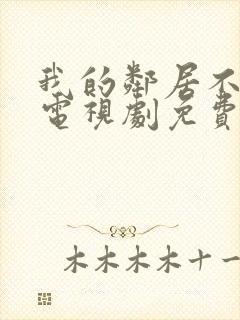 我的鄰居不
電視劇免費
木木木木十一